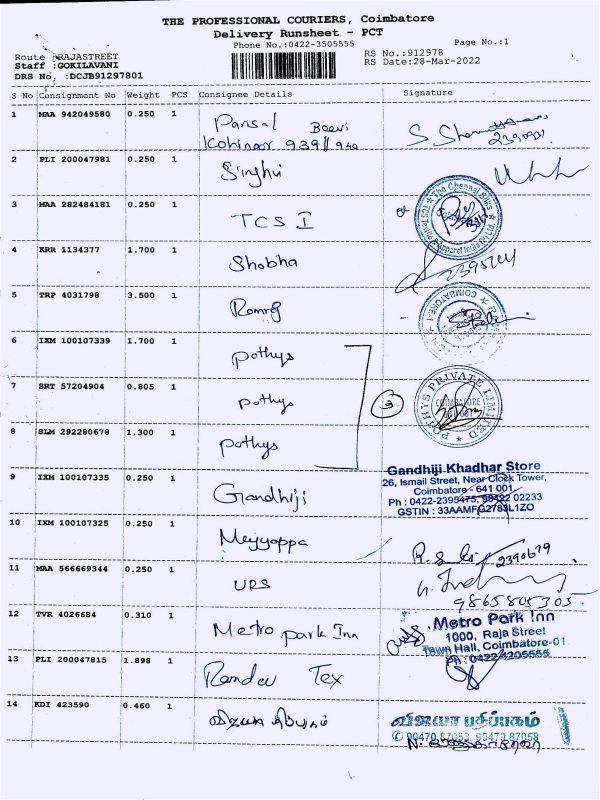 THE PROFESSIONAL COURIERS, Coimbatore
Delivery Runsheet - PCT
Phone No.:0422-3505555
Page No.:1
Route :RAJASTREET
Staff :GOKILAVANI
DRS No. :DCJB91297801
RS No.:912978
RS Date:28-Mar-2022
S No Consignment No Weight PCS Consignee Details Signature
1 MAA 942049580 0.250 1 Parisal Beevi
Kohinoor
2 PLI 200047981 0.250 1 Singhvi
3 MAA 282484181 0.250 1 TCS I
The Chennai Silks
4 KRR 1134377 1.700 1 Shobha
5 TRP 4031798 3.500 1
COIMBATORE-1
6 IXM 100107339 1.700 1 pothys
7 SRT 57204904 0.805 1 pothys 3
POTHYS PRIVATE LIMITED
COIMBATORE
8 SLM 292280678 1.300 1 pothys
9 IXM 100107335 0.250 1 Gandhiji
Gandhiji Khadhar Store
26, Ismail Street, Near Clock Tower,
Coimbatore - 641 001.
Ph : 0422-2395475, 98422 02233
GSTIN : 33AAMFG2783L1ZO
10 IXM 100107325 0.250 1 Meyyappa
11 MAA 566669344 0.250 1 UPS
9865805305
12 TVR 4026684 0.310 1 Metro park Inn
Metro Park Inn
1000, Raja Street
Town Hall, Coimbatore-01.
Ph : 0422-4205555
13 PLI 200047815 1.898 1 Ramdev Tex
14 KDI 423590 0.460 1
விஜயா பதிப்பகம்
90470 87053, 90470 87058